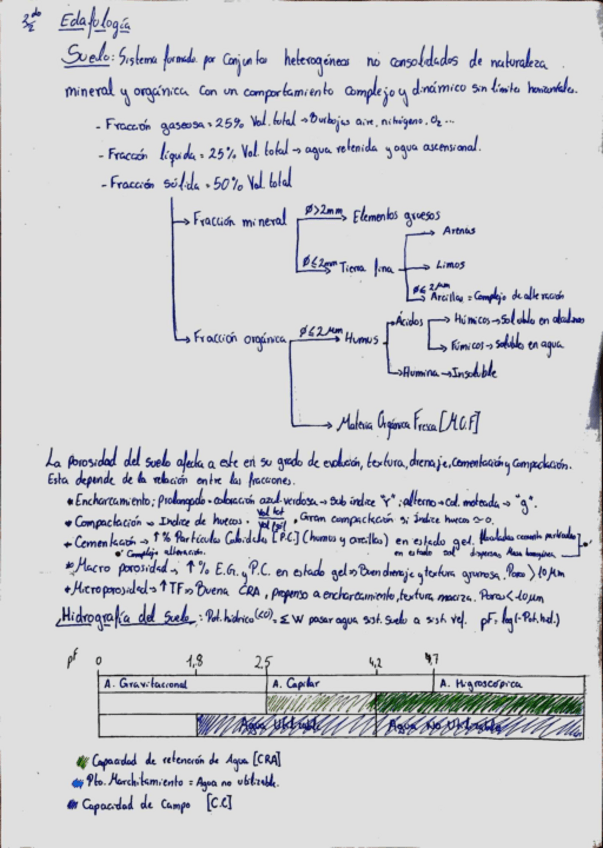 Edafología
Suelo: Sistema formado por Conjuntos heterogéneos no consolidados de naturaleza
mineral y orgánica con un comportamiento complejo y dinámico sin límite horizontales.
- Fracción gaseosa = 25% Vol. total → Burbujas aire, nitrógeno, O₂ ...
- Fracción líquida = 25% Vol. total → agua retenida y agua ascensional.
- Fracción sólida = 50% Vol. total
→ Fracción mineral Ø>2mm → Elementos gruesos
→ Arenas
Ø≤2mm → Tierra fina → Limos
Ø≤2μm → Arcillas = Complejo de alteración
→ Fracción orgánica Ø≤2μm → Humus → Ácidos → Húmicos → Soluble en
→ Fúmicos → soluble en agua
→ Humina → Insoluble
→ Materia Orgánica Fresca [M.O.F]
La porosidad del suelo afecta a este en su grado de evolución, textura, drenaje, Cementación y Compactación.
Esta depende de la relación entre las fracciones.
* Encharcamiento; Prolongado → coloración azul verdosa → Sub índice "r"; alterno → Col. moteada → "g".
* Compactación → Indice de huecos = Vol tot , Gran compactación si Índice huecos ≃ 0.
* Cementación → ↑% Partículas Coloidales [P.C.] (humus y arcillas) en estado gel.
* Complejo alteración. en estado sol
* Macro porosidad → ↑% E.G. y P.C. en estado gel → Buen drenaje y textura grumosa. Poros > 10 μm
* Microporosidad → ↑ TF → Buena CRA, propenso a encharcamiento, textura maciza. Poros < 10μm
Hidrografía del Suelo: Pot. hídrico(<0) = Σ W pasar agua sist. suelo a sist. ref. pF = log(-Pot. hid.)
pF 0 1,8 2,5 4,2 4,7
A. Gravitacional A. Capilar A. Higroscópica
Agua Utilizable Agua No Utilizable
Capacidad de retención de Agua [CRA]
Pto. Marchitamiento = Agua no utilizable.
Capacidad de Campo [C.C]